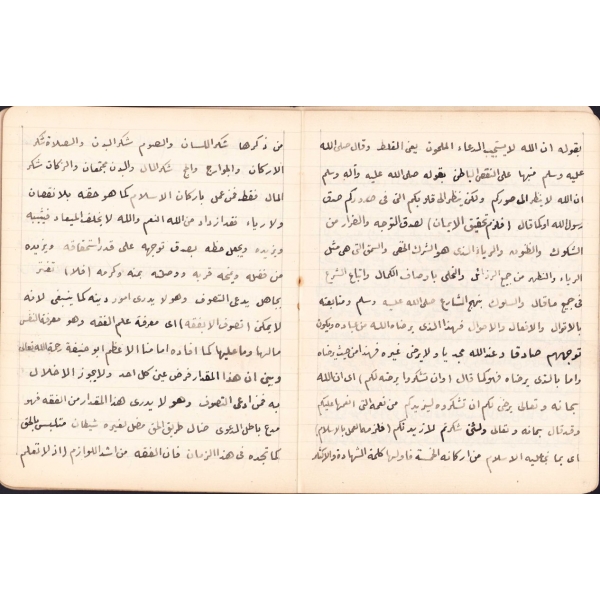 بقوله ان الله لا يستجيب الدعاء الملحون يعنى الغلط وقال صلى الله
عليه وسلم منبها على النقص الباطنى بقوله صلى الله عليه وآله وسلم
ان الله لا ينظر الى صوركم ولكن ينظر الى قلوبكم التى فى صدوركم صدق
رسول الله او كما قال (فلازم تحقيق الايمان) لصدق التوجه والفرار من
الشكوك والظنون والرياء الذى هو الشرك الخفى والسمع التى هى مثل
الرياء والتطهر من جميع الرزائل والتحلى باوصاف الكمال واتباع الشرع
فى جميع ما قال والسلوك بنهج الشارع صلى الله عليه وسلم ومتابعته
بالاقوال والافعال والاحوال فهذا الذى يرضاه الله من عباده ويكون
توجههم صادقا وعند الله مجديا ولا يرضى غيره فهذا من حيث رضاه
واما بالذى يرضاه فهو كما قال (وان تشكروا يرضه لكم) اى ان الله
سبحانه وتعالى يرضى لكم ان تشكروه ليزيدكم من نعمه التى انعمها عليكم
وقد قال سبحانه وتعالى ولئن شكرتم لازيدنكم (فلزم العمل بالاسلام)
اى بما بنى عليه الاسلام من اركانه الخمسة فاولها كلمة الشهادة والاكثار
من ذكرها شكر اللسان والصوم شكر البدن والصلاة شكر
الاركان والجوارح والحج شكر المال والبدن مجتمعان والزكات شكر
المال فقط فمن عمل باركان الاسلام كما هو حقه بلا نقصان
ولا رياء فقد ازداد من الله النعم والله لا يخلف الميعاد فيثيبه
ويزيده ويجعل حظه بصدق توجهه على قدر استحقاقه ويزيده
من فضله ويمنحه قربه ووصله بمنه وكرمه (فلا) تغتر
بجاهل يدعى التصوف وهو لا يدرى امور دينه كما ينبغى لانه
لا يمكن (تصوف الا بفقه) اى معرفة علم الفقه وهو معرفة النفس
مالها وما عليها كما افاده امامنا الاعظم ابو حنيفة رحمة الله تعالى
وبين ان هذا المقدار فرض عين كل احد ولا يجوز الاخلال
به فمن ادعى التصوف وهو لا يدرى هذا المقدار من الفقه فهو
مدع باطل الدعوى ضال طريق الحق مضل لغيره شيطان متلبس بالحق
كما تجده فى هذا الزمان فان الفقه من اشد اللوازم (اذ لا تعلم